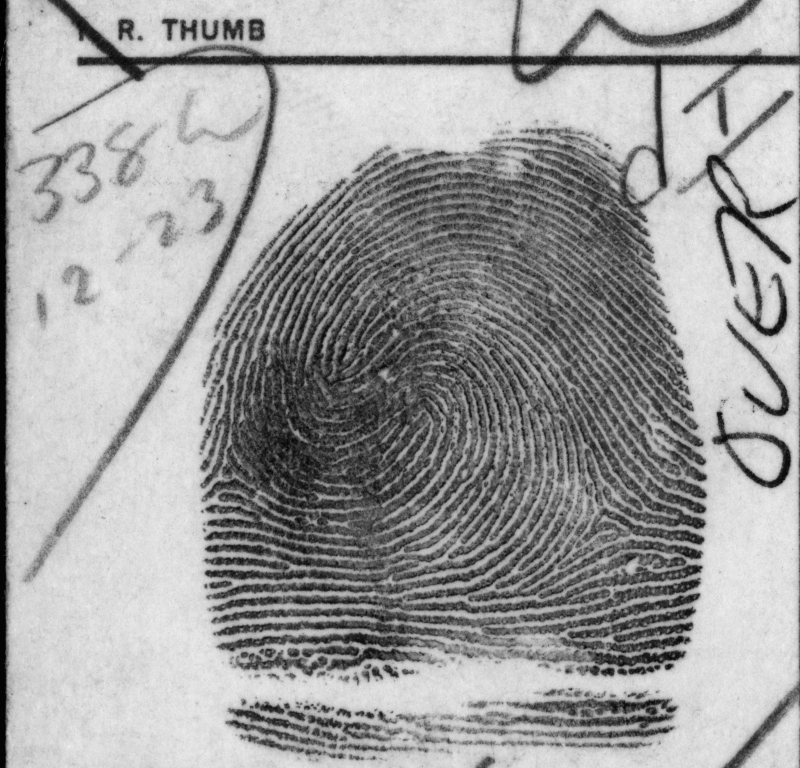 R. THUMB
338 W
12-23
OVER